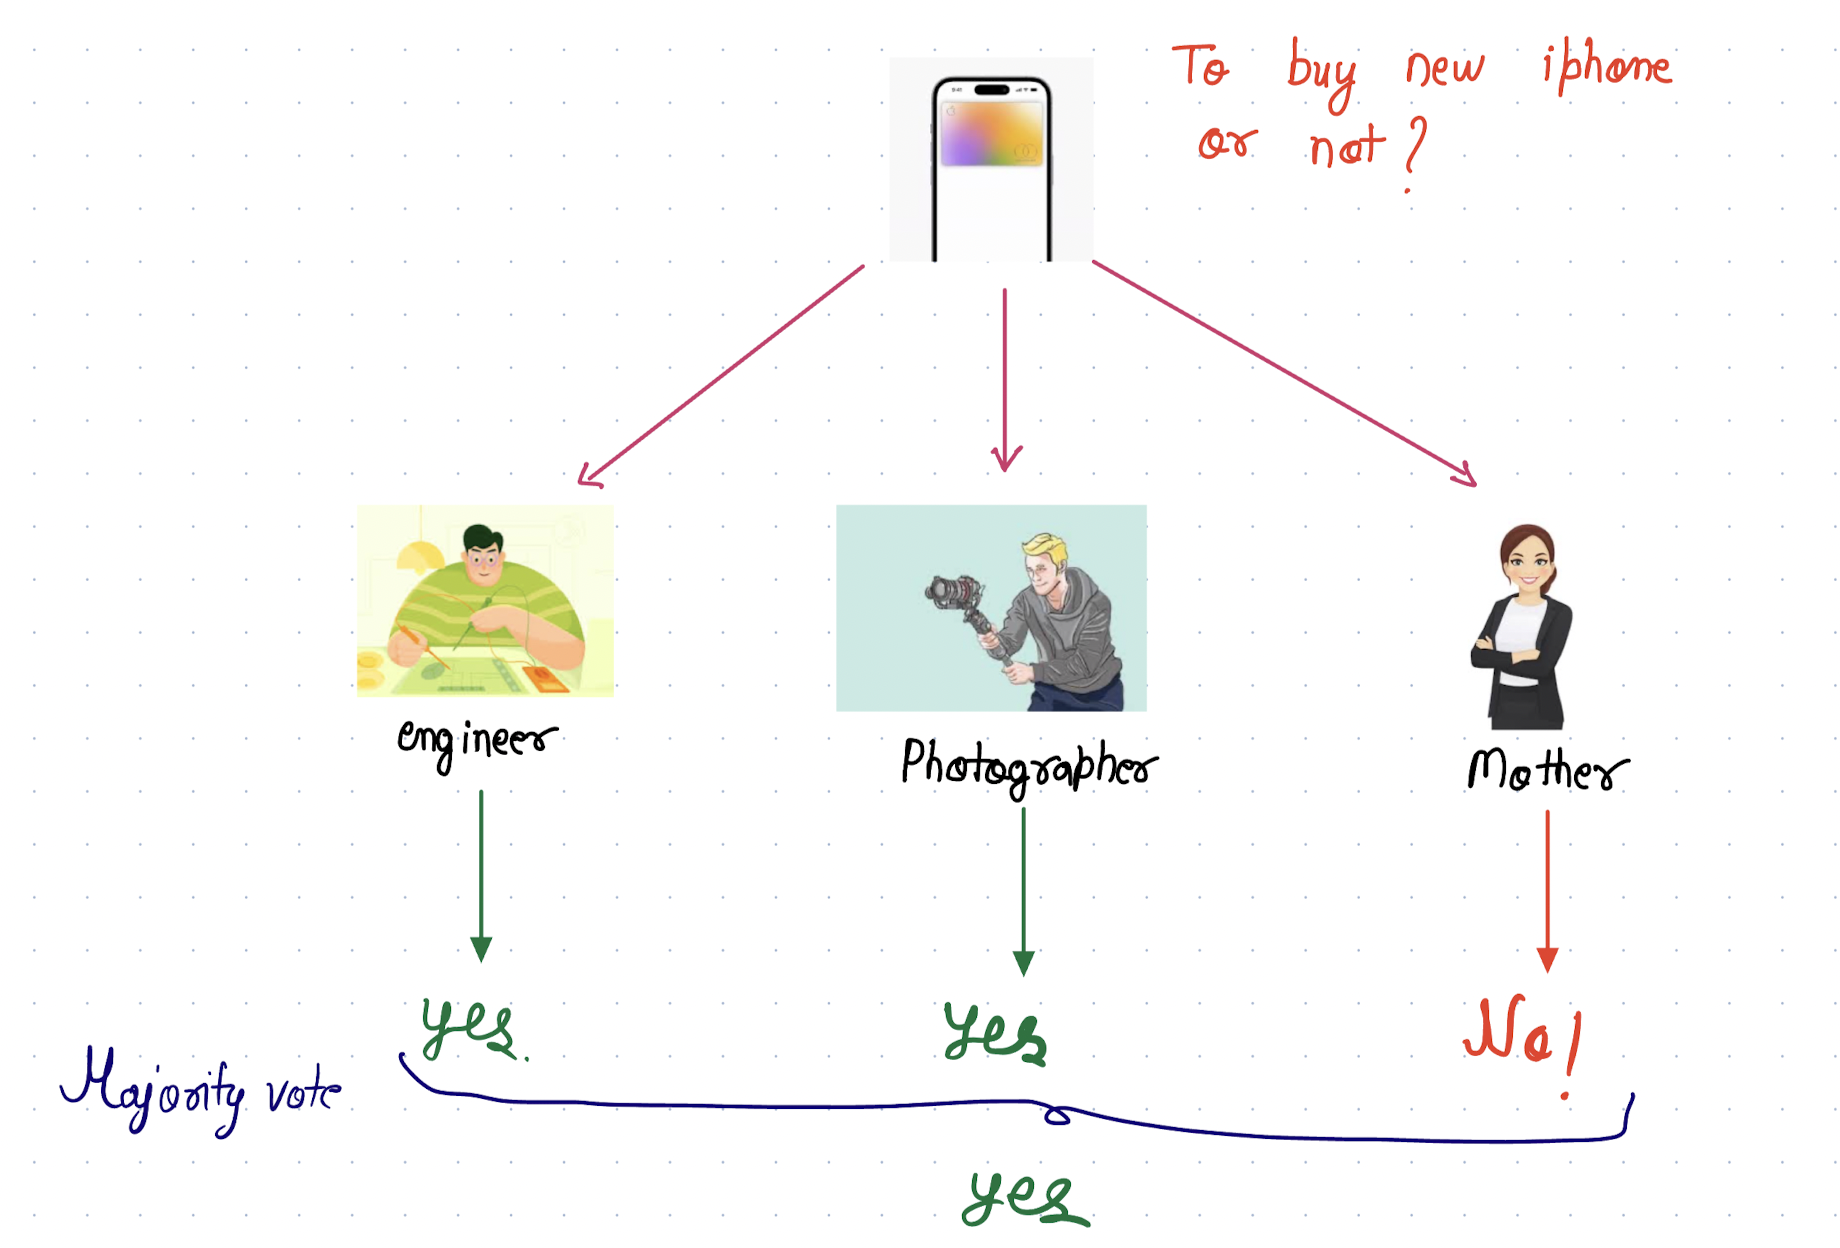 To buy new iphone
or not?
9:41
engineer
Photographer
Mother
yes.
yes
No!
Majority vote
yes